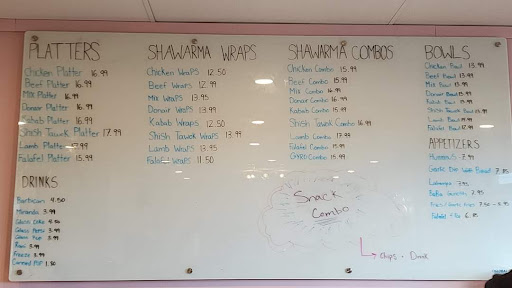 PLATTERS
Chicken Platter 16.99
Beef Platter 16.99
Mix Platter 16.99
Donair Platter 16.99
Kabab Platter 16.99
Shish Tawok Platter 17.99
Lamb Platter
Falafel Platter 15.99
DRINKS
Barbican 4.50
Miranda 3.99
Glass Coke 4.50
Glass Pepsi 3.99
Glass Pop 3.99
Rani 3.99
Freeze 3.99
Canned Pop 1.50
SHAWARMA WRAPS
Chicken Wraps 12.50
Beef Wraps 12.99
Mix Wraps 13.95
Donair Wraps 13.99
Kabab Wraps 12.50
Shish Tawok Wraps 13.99
Lamb Wraps 13.95
Falafel Wraps 11.50
SHAWARMA COMBOS
Chicken Combo 15.99
Beef Combo 15.99
Mix Combo 16.99
Donair Combo 16.99
Kabab Combo 15.99
Shish Tawok Combo 16.99
Lamb Combo
Falafel Combo
Combo 15.99
Snack
Combo
Chips + Drink
BOWLS
Chicken Bowl 13.99
Beef Bowl 13.99
Mix Bowl 13.99
Donair Bowl
Kabab Bowl
Shish Tawok Bowl
Lamb Bowl
Falafel Bowl
APPETIZERS
Hummus 7.95
Garlic Dip With Bread
7.95
Baba
Fries
Falafel